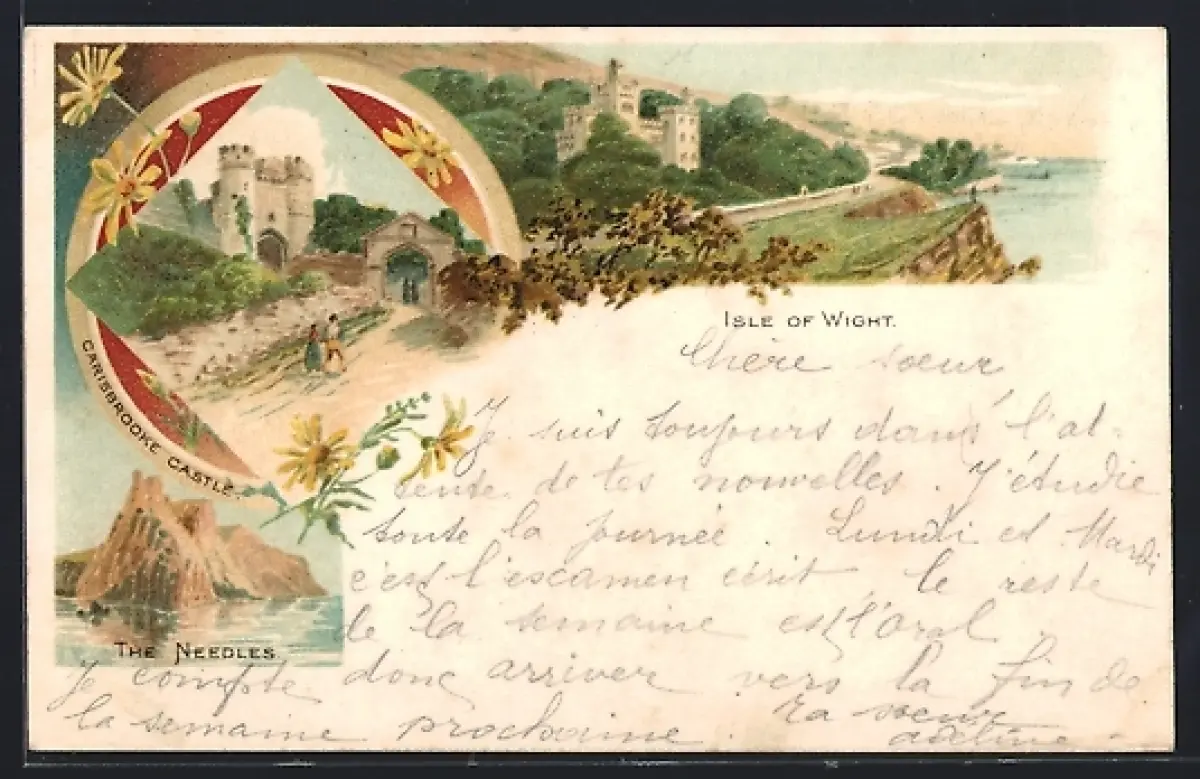 ISLE OF WIGHT.
CARISBROOKE CASTLE.
THE NEEDLES
Chère soeur
Je suis toujours dans l'at-
tente de tes nouvelles. J'étudie
toute la journée. Lundi et Mardi
c'est l'escamen écrit, le reste
de la semaine est l'oral.
Je compte donc arriver vers la fin de
la semaine prochaine.
ta soeur